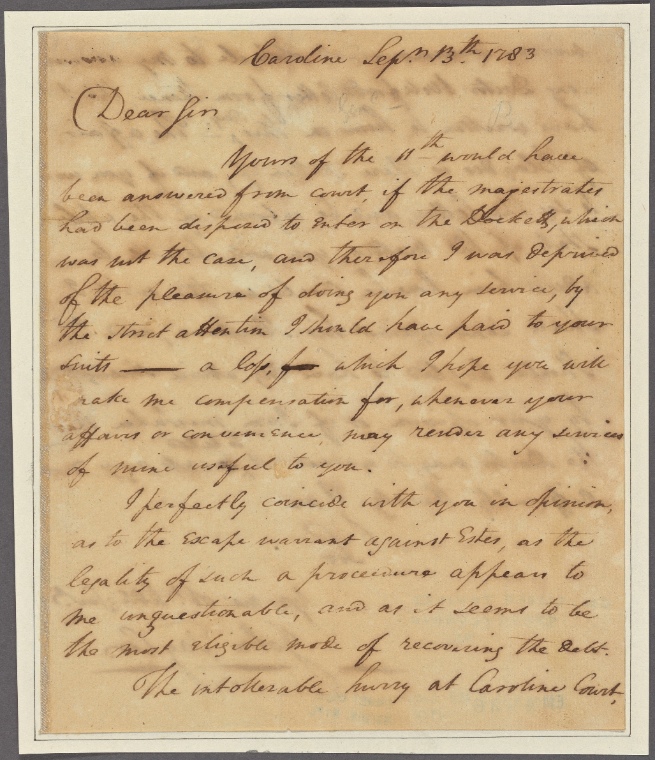 Caroline Sepn. 13th. 1783
Dear Sir
Yours of the 11th would have
been answered from court, if the magestrates
had been disposed to enter on the Docketts, which
was not the case, and therefore I was deprived
of the pleasure of doing you any service, by
the strict attention I should have paid to your
suits —— a loss, which I hope you will
make me compensation for, whenever your
affairs or convenience, may render any services
of mine useful to you.
I perfectly coincide with you in opinion,
as to the escape warrant against Estes, as the
legality of such a procedure appears to
me unquestionable, and as it seems to be
the most eligible mode of recovering the debt.
The intollerable hurry at Caroline Court,